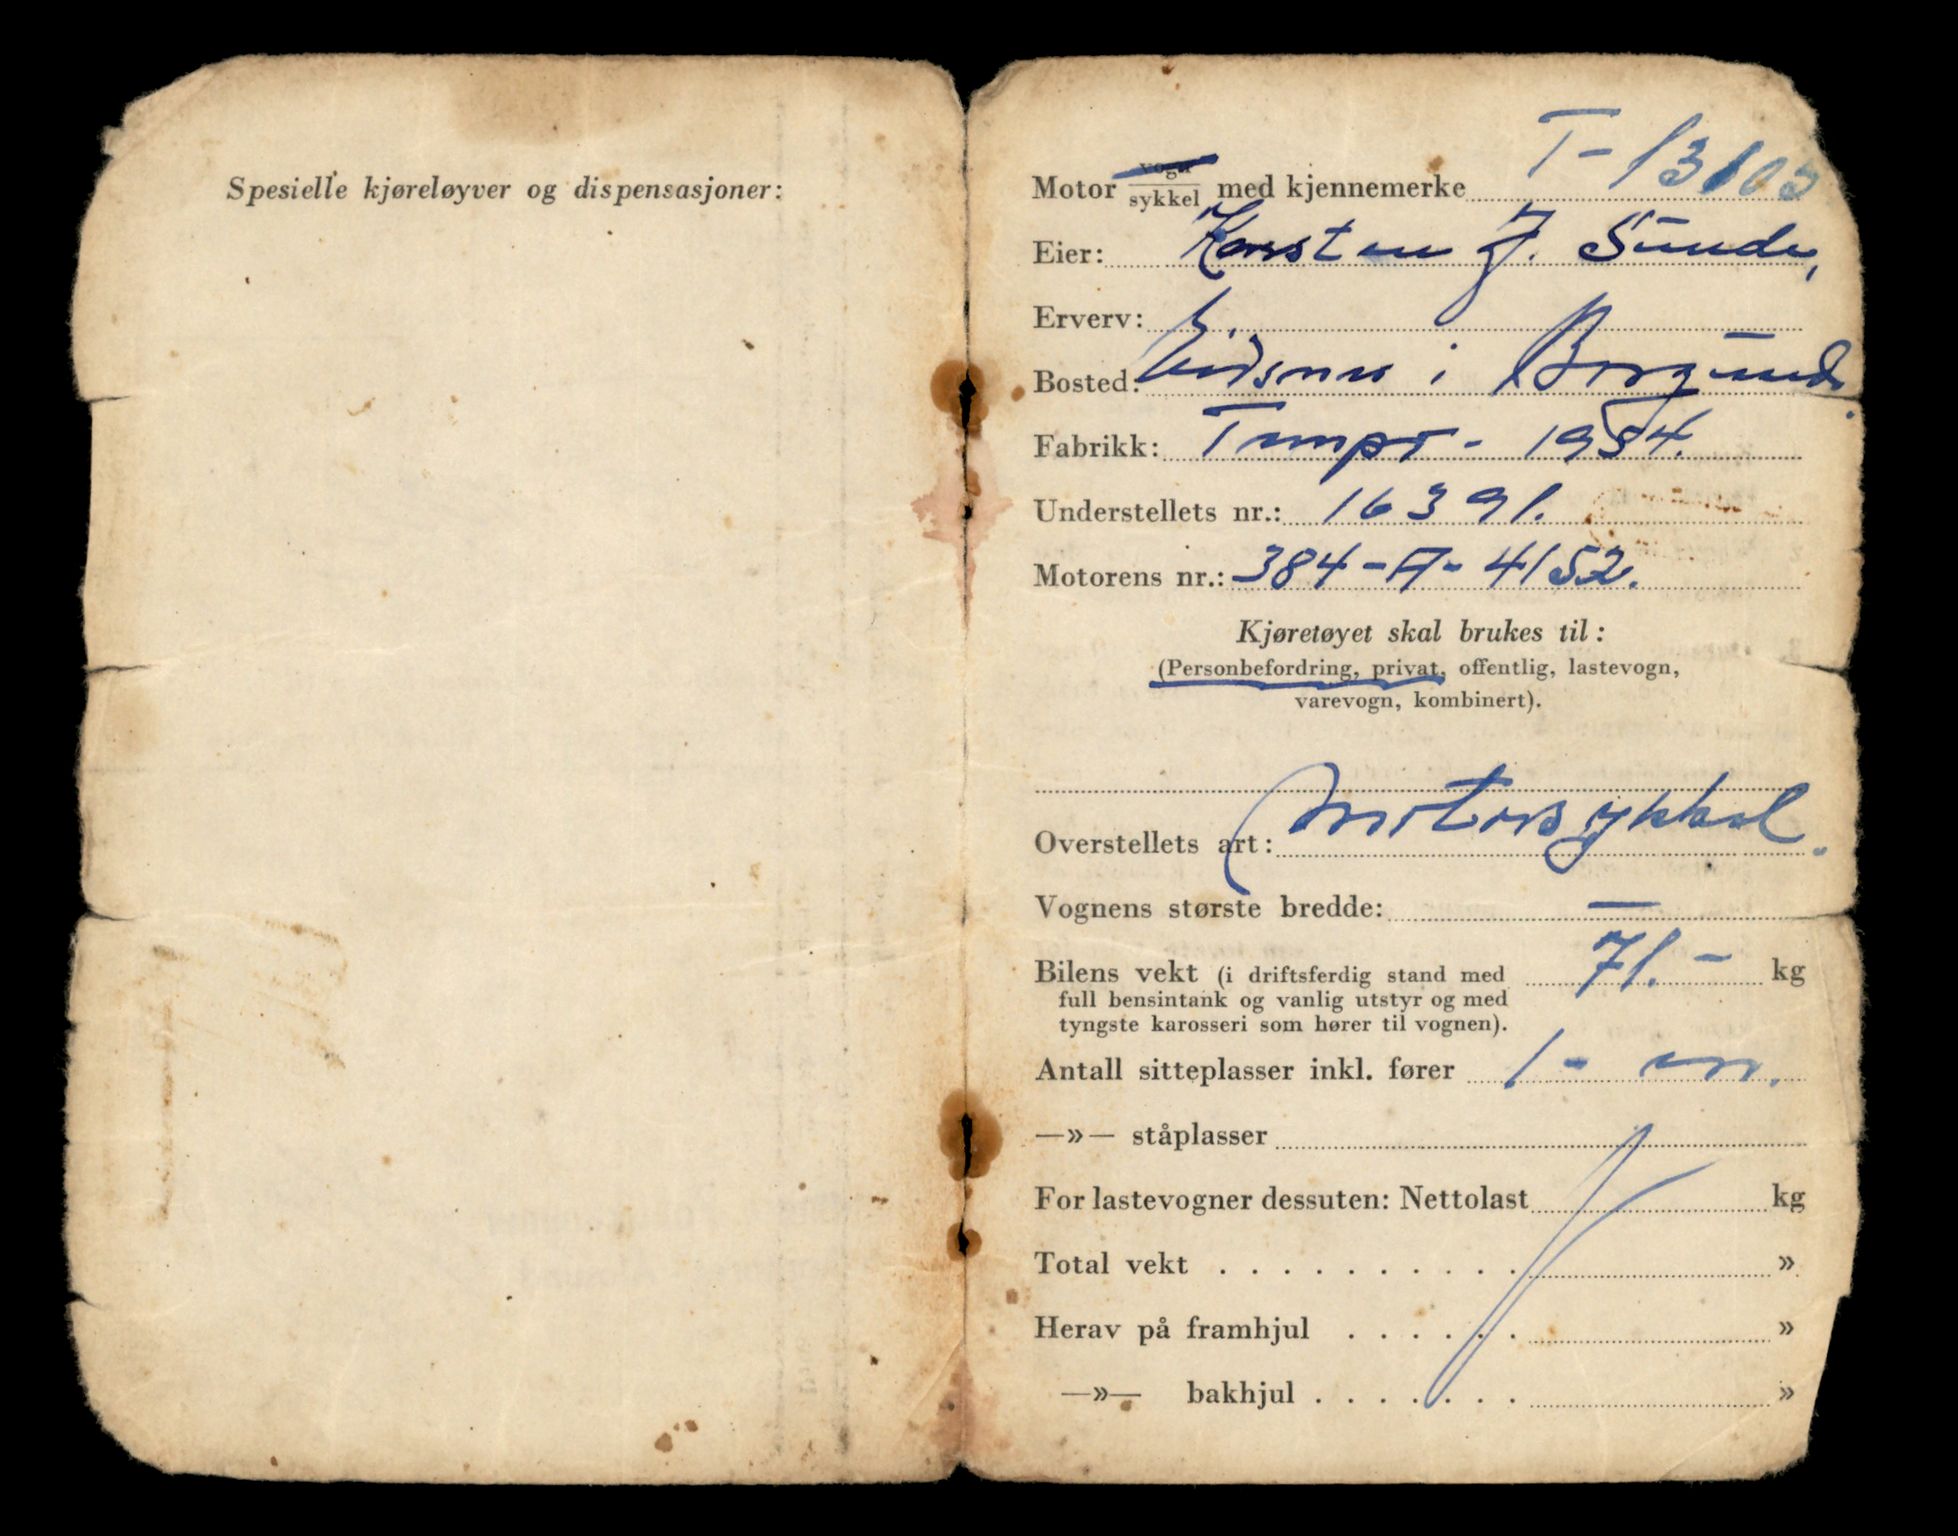 Spesielle kjøreløyver og dispensasjoner:
Motor vogn/sykkel med kjennemerke T-13103
Eier: Karsten J. Sunde,
Erverv:
Bosted: Eidsnes i Borgund.
Fabrikk: Tempo - 1954.
Understellets nr.: 16391.
Motorens nr.: 384-A-4152.
Kjøretøyet skal brukes til:
(Personbefordring, privat, offentlig, lastevogn,
varevogn, kombinert).
Overstellets art: Motorsykkel.
Vognens største bredde: —
Bilens vekt (i driftsferdig stand med 71.- kg
full bensintank og vanlig utstyr og med
tyngste karosseri som hører til vognen).
Antall sitteplasser inkl. fører 1 - en.
—»— ståplasser
For lastevogner dessuten: Nettolast kg
Total vekt . . . . . . . . . . »
Herav på framhjul . . . . . . »
—»— bakhjul . . . . . . . »